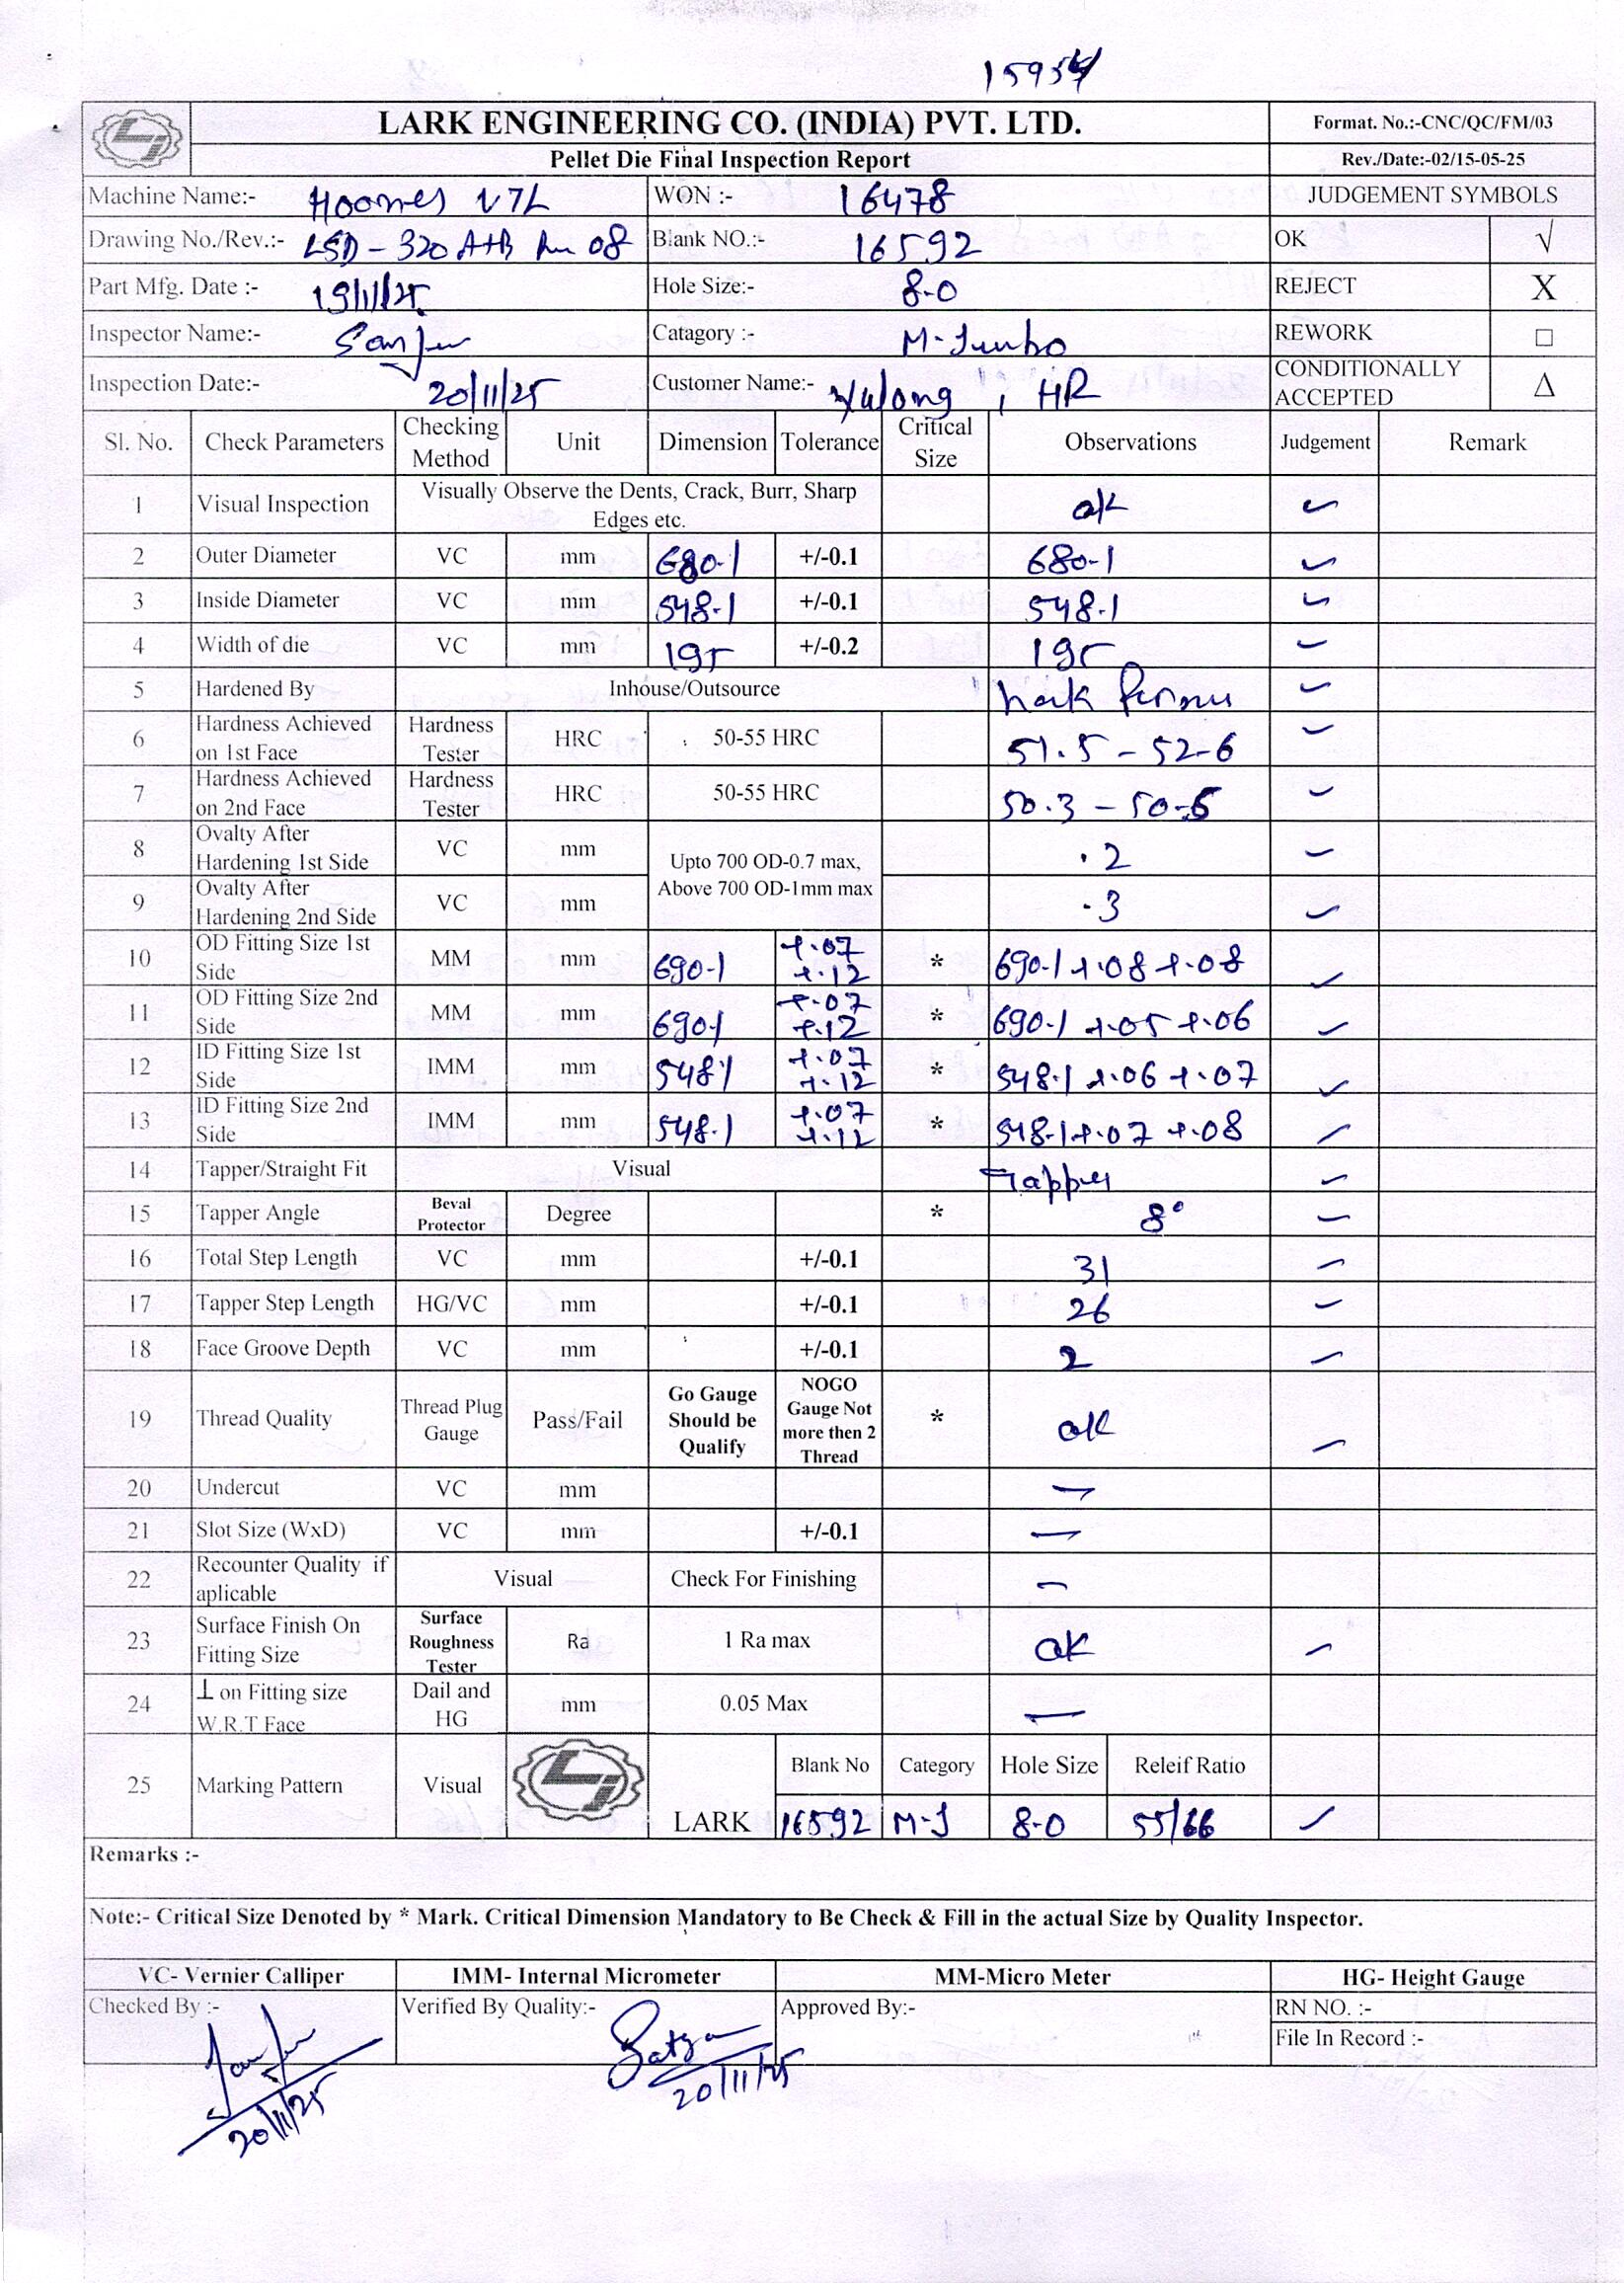 15954
LARK ENGINEERING CO. (INDIA) PVT. LTD.
Format. No.:-CNC/QC/FM/03
Pellet Die Final Inspection Report
Rev./Date:-02/15-05-25
Machine Name:- V7L WON :- 16478 JUDGEMENT SYMBOLS
Drawing No./Rev.:- LSD-320 A+B 08 Blank NO.:- 16592 OK √
Part Mfg. Date :- 19/11/25 Hole Size:- 8.0 REJECT X
Inspector Name:- Catagory :- M-Jumbo REWORK □
Inspection Date:- 20/11/25 Customer Name:- Yulong, HR CONDITIONALLY ACCEPTED Δ
Sl. No. Check Parameters Checking Method Unit Dimension Tolerance Critical Size Observations Judgement Remark
1 Visual Inspection Visually Observe the Dents, Crack, Burr, Sharp Edges etc. ok ✓
2 Outer Diameter VC mm 680.1 +/-0.1 680.1 ✓
3 Inside Diameter VC mm 548.1 +/-0.1 548.1 ✓
4 Width of die VC mm 195 +/-0.2 195 ✓
5 Hardened By Inhouse/Outsource ✓
6 Hardness Achieved on 1st Face Hardness Tester HRC 50-55 HRC 51.5 - 52.6 ✓
7 Hardness Achieved on 2nd Face Hardness Tester HRC 50-55 HRC 50.3 - 50.5 ✓
8 Ovalty After Hardening 1st Side VC mm Upto 700 OD-0.7 max, Above 700 OD-1mm max .2 ✓
9 Ovalty After Hardening 2nd Side VC mm .3 ✓
10 OD Fitting Size 1st Side MM mm 690.1 +.07 +.12 * 690.1 +.08 +.08 ✓
11 OD Fitting Size 2nd Side MM mm 690.1 +.07 +.12 * 690.1 +.05 +.06 ✓
12 ID Fitting Size 1st Side IMM mm 548.1 +.07 +.12 * 548.1 +.06 +.07 ✓
13 ID Fitting Size 2nd Side IMM mm 548.1 +.07 +.12 * 548.1 +.07 +.08 ✓
14 Tapper/Straight Fit Visual Tapper ✓
15 Tapper Angle Beval Protector Degree * 8° ✓
16 Total Step Length VC mm +/-0.1 31 ✓
17 Tapper Step Length HG/VC mm +/-0.1 26 ✓
18 Face Groove Depth VC mm +/-0.1 2 ✓
19 Thread Quality Thread Plug Gauge Pass/Fail Go Gauge Should be Qualify NOGO Gauge Not more then 2 Thread * ok ✓
20 Undercut VC mm —
21 Slot Size (WxD) VC mm +/-0.1 —
22 Recounter Quality if aplicable Visual Check For Finishing —
23 Surface Finish On Fitting Size Surface Roughness Tester Ra 1 Ra max ok ✓
24 ⊥ on Fitting size W.R.T Face Dail and HG mm 0.05 Max —
25 Marking Pattern Visual LARK Blank No Category Hole Size Releif Ratio
16592 M-J 8.0 55/66 ✓
Remarks :-
Note:- Critical Size Denoted by * Mark. Critical Dimension Mandatory to Be Check & Fill in the actual Size by Quality Inspector.
VC- Vernier Calliper IMM- Internal Micrometer MM-Micro Meter HG- Height Gauge
Checked By :- Verified By Quality:- Approved By:- RN NO. :-
File In Record :-
20/11/25 20/11/25